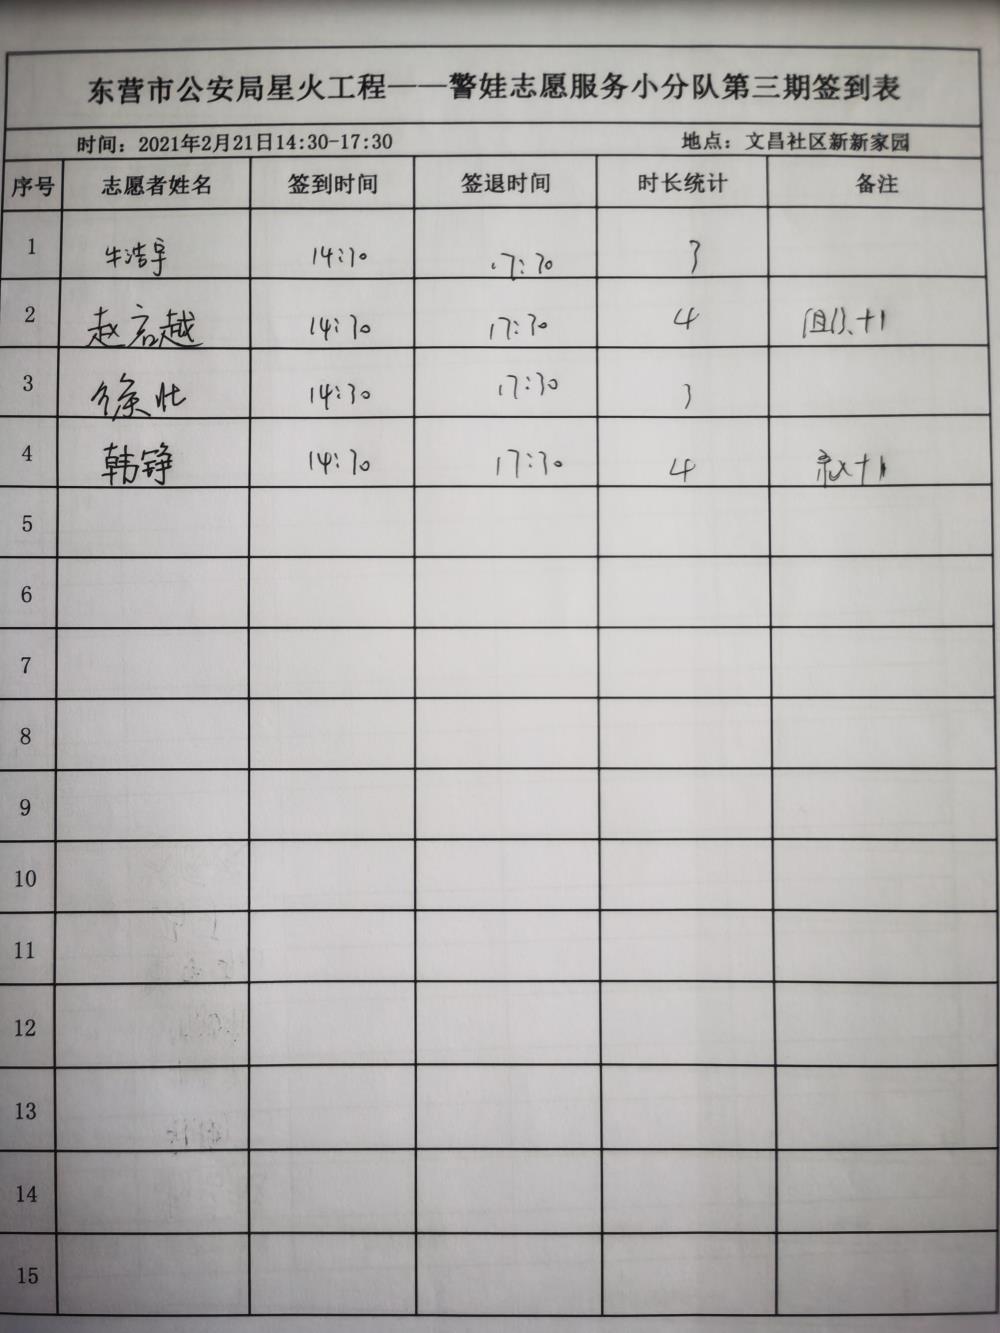 东营市公安局星火工程——警娃志愿服务小分队第三期签到表
时间：2021年2月21日14:30-17:30 地点：文昌社区新新家园
序号 志愿者姓名 签到时间 签退时间 时长统计 备注
1 牛浩宇 14:30 17:30 3
2 赵启越 14:30 17:30 4 +1
3 徐壮 14:30 17:30 3
4 韩铮 14:30 17:30 4 +1
5
6
7
8
9
10
11
12
13
14
15